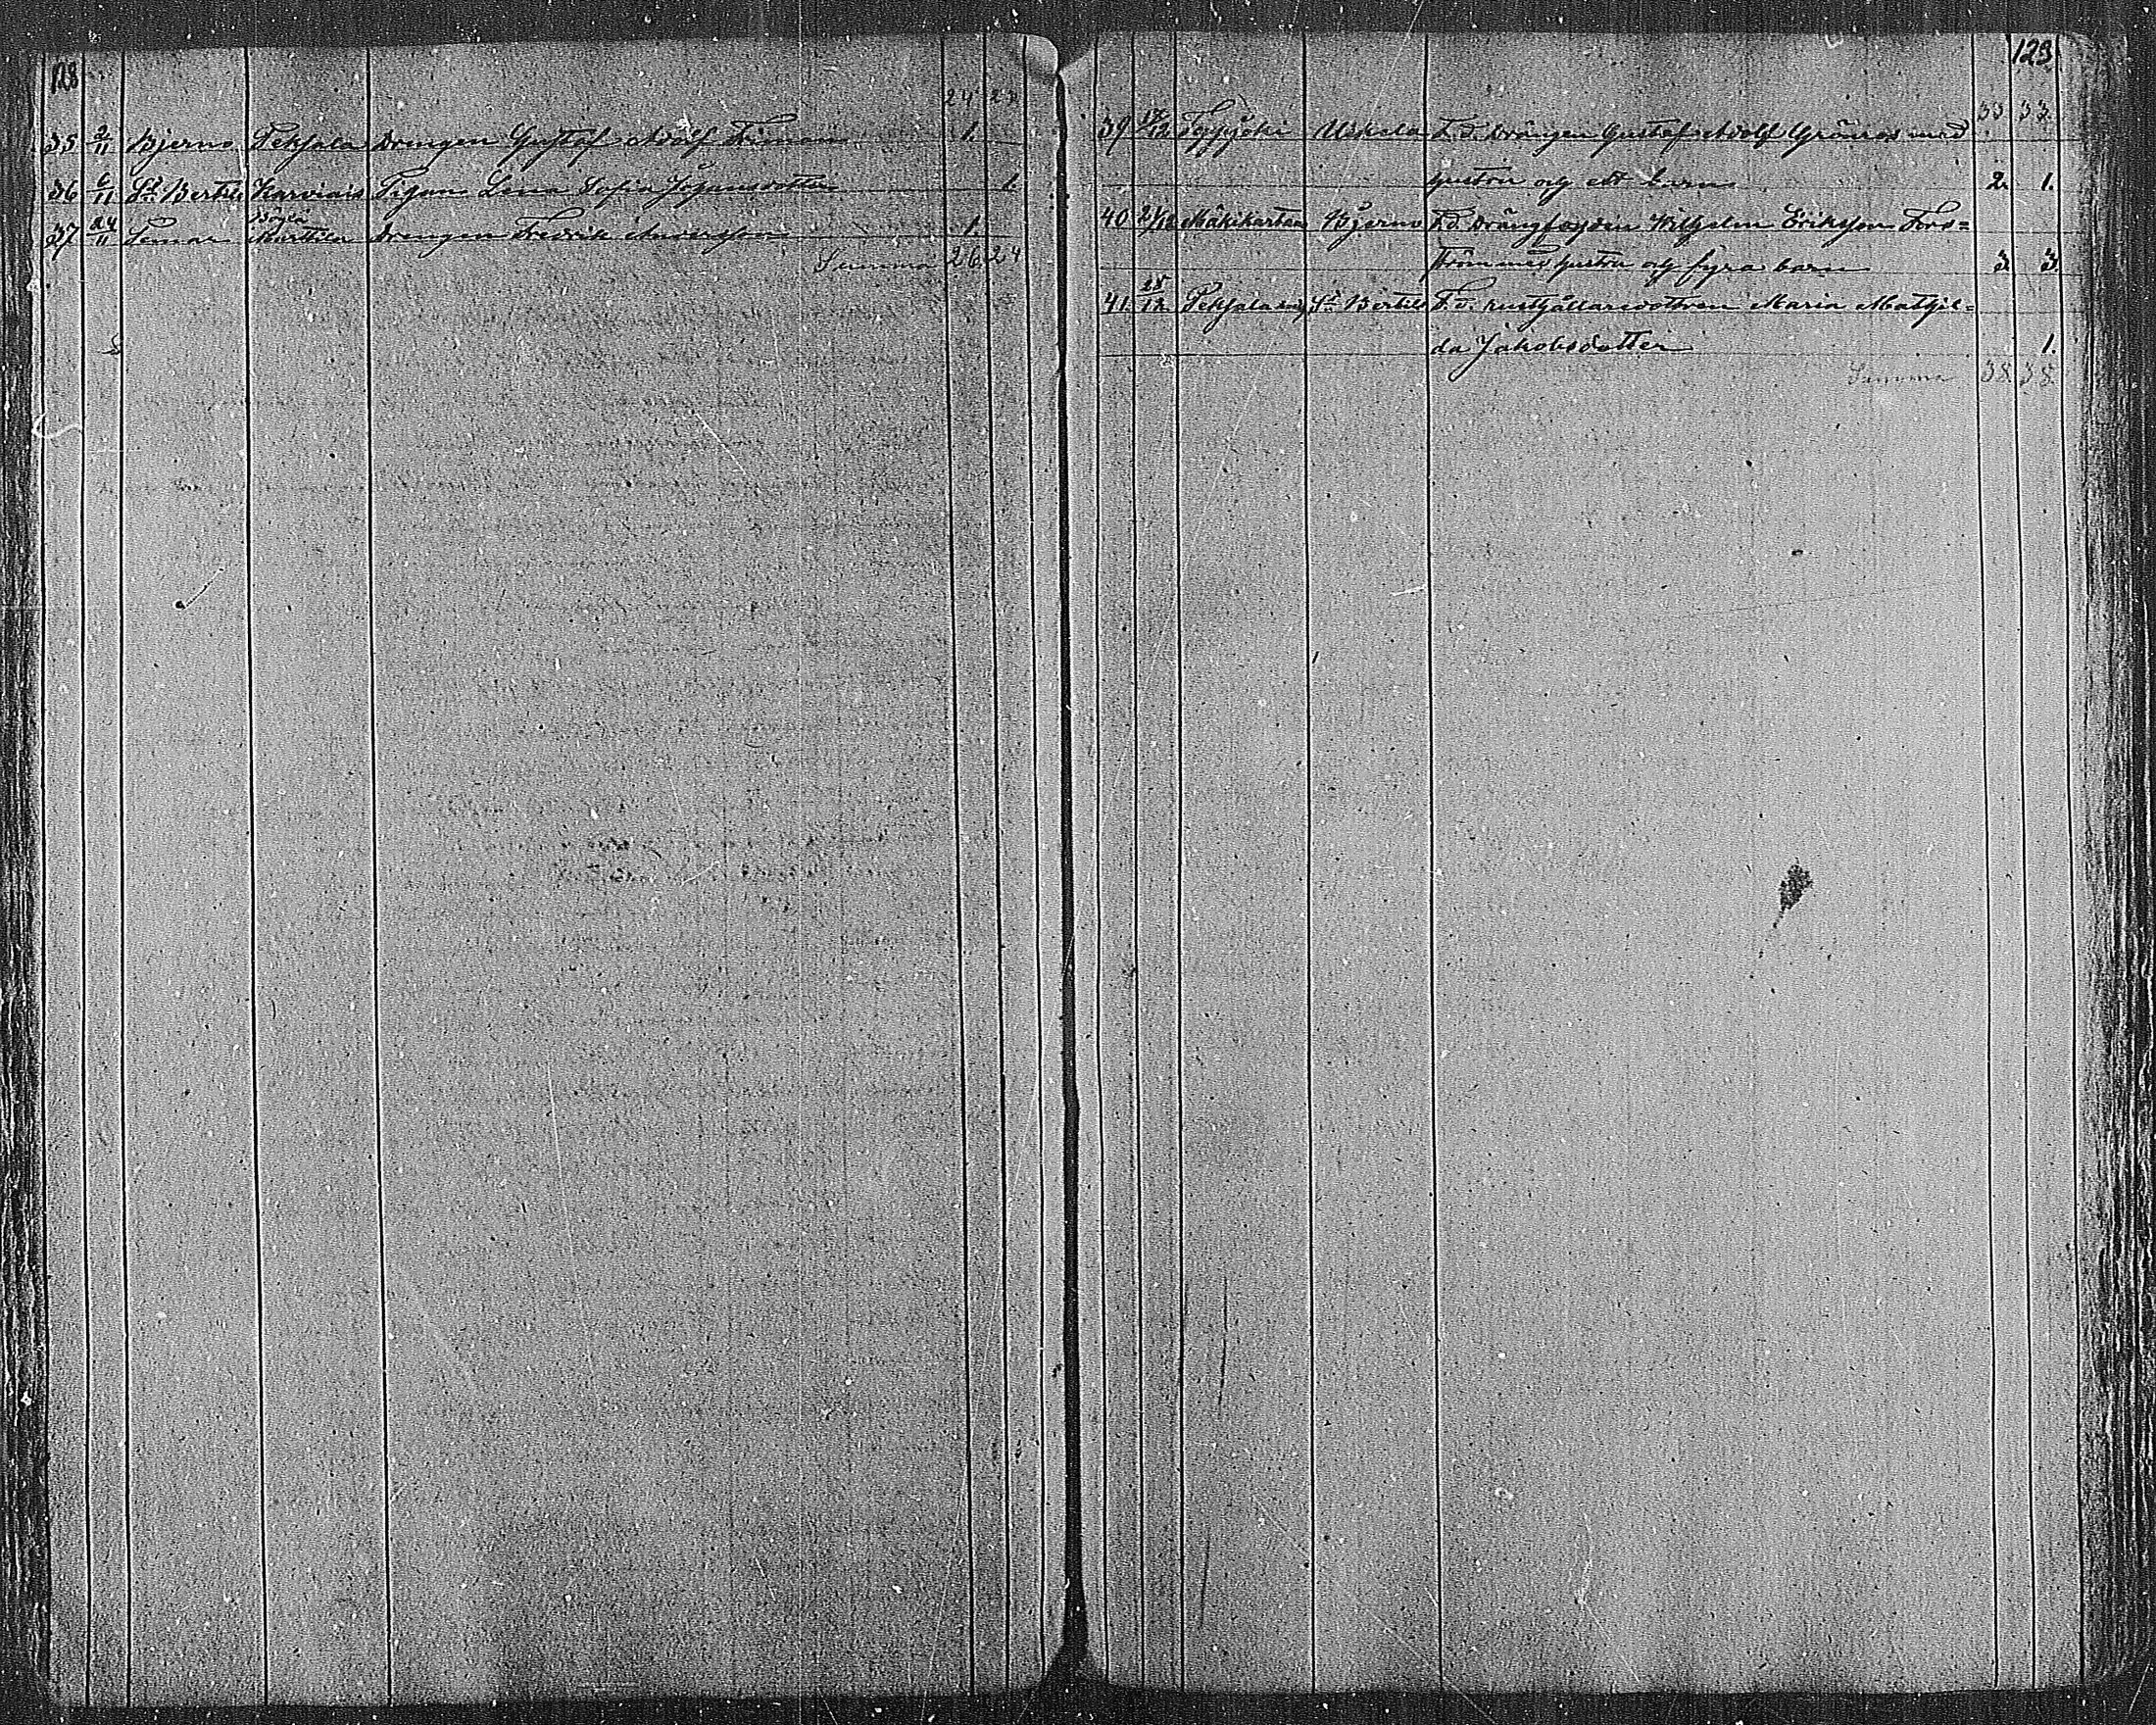 128
24 23
35 2/11 Bjerno Pekjala Drengen Gustaf Adolf Firman 1.
36 6/11 St Bertils Karviais Pigan Lena Sofia Johansdotter 1.
37 24/11 Pemar Marttila Drengen Fredrik Andersson 1.
Summa 26 24
129
33 33
39 Uskela F. d. Drängen Gustaf Adolf Grönros med
hustru och ett barn 2. 1.
40 Bjerno F. d. Wilhelm Eriksson Fors=
ström med hustru och fyra barn 3. 3.
41. 28/12 St Bertils F. d. rusthållaredottren Maria Mathil=
da Jakobsdotter 1.
Summa 38 38